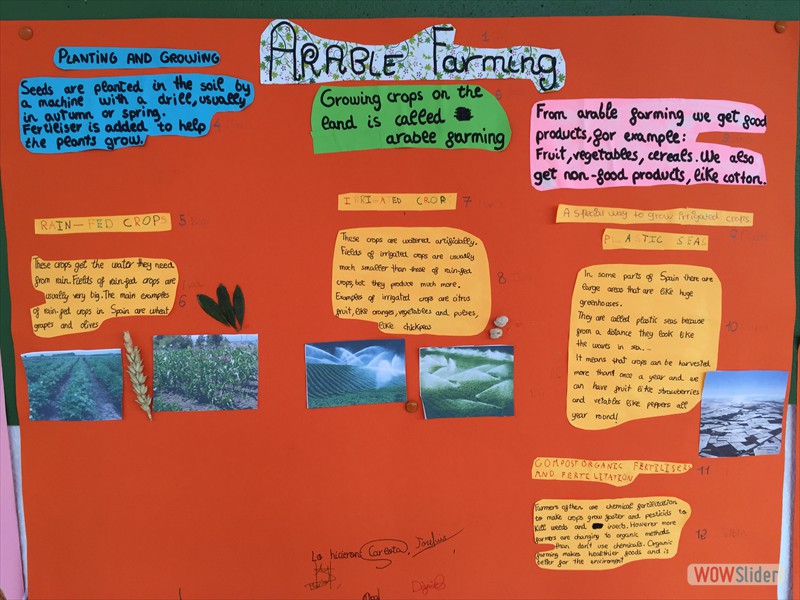 ARABLE Farming
1
PLANTING AND GROWING
Seeds are planted in the soil by
a machine with a drill, usually
in autumn or spring.
Fertiliser is added to help
the plants grow.
4
Growing crops on the
land is called
arabee farming
From arable farming we get good
products, for example:
Fruit, vegetables, cereals. We also
get non-good products, like cotton.
RAIN-FED CROPS
5
These crops get the water they need
from rain. Fields of rain-fed crops are
usually very big. The main examples
of rain-fed crops in Spain are wheat,
grapes and olives
6
IRRIGATED CROP
7
These crops are watered artificially.
Fields of irrigated crops are usually
much smaller than those of rain-fed
crops, but they produce much more.
Examples of irrigated crops are citrus
fruit, like oranges, vegetables and pulses,
like chickpeas
8
A special way to grow irrigated crops
PLASTIL SEAS
In some parts of Spain there are
large areas that are like huge
greenhouses.
They are called plastic seas because
from a distance they look like
the waves in sea...
It means that crops can be harvested
more than once a year and we
can have fruit like strawberries
and vetables like peppers all
year round!
10
COMPOST ORGANIC FERTILISER
AND FERTILITATION
11
Farmers often use chemical fertilization
to make crops grow faster and pesticids to
kill weeds and insects. However more
farmers are changing to organic methods
than don't use chemicals. Organic
farming makes healthier foods and is
better for the enviroment
12
Lo hicieron: Carlota,
WOWSlider